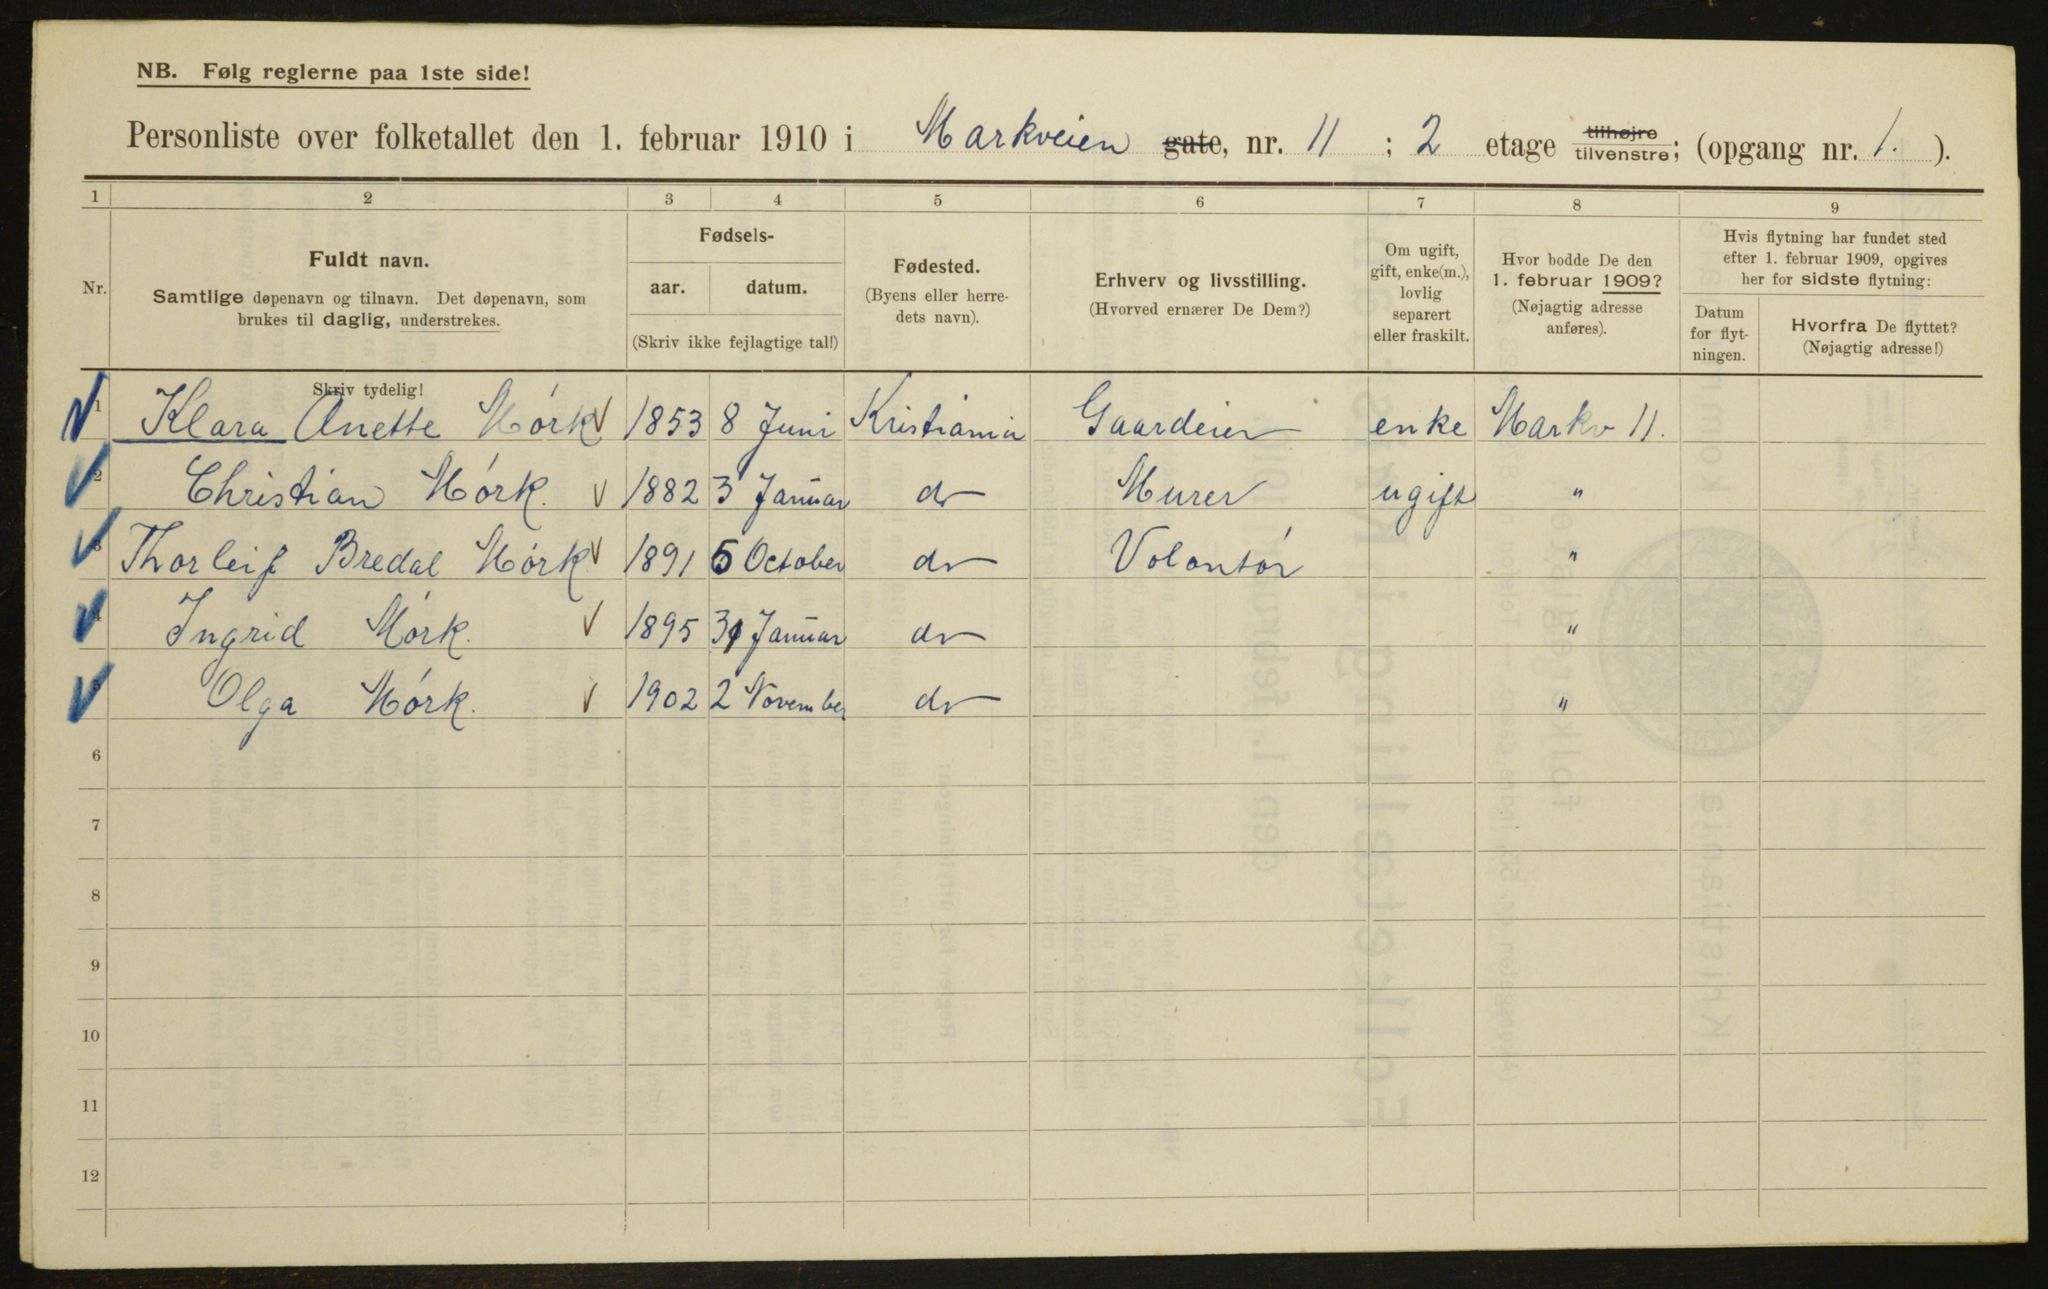 NB. Følg reglerne paa 1ste side!
Personliste over folketallet den 1. februar 1910 i Markveien gate, nr. 11 ; 2 etage tilhøjre tilvenstre; (opgang nr. 1. ).
1 2 3 4 5 6 7 8 9
Nr. Fuldt navn. Samtlige døpenavn og tilnavn. Det døpenavn, som brukes til daglig, understrekes.
Fødsels- aar. datum. (Skriv ikke fejlagtige tal!)
Fødested. (Byens eller herredets navn).
Erhverv og livsstilling. (Hvorved ernærer De Dem?)
Om ugift, gift, enke(m.), lovlig separert eller fraskilt.
Hvor bodde De den 1. februar 1909? (Nøjagtig adresse anføres).
Hvis flytning har fundet sted efter 1. februar 1909, opgives her for sidste flytning:
Datum for flytningen.
Hvorfra De flyttet? (Nøjagtig adresse!)
Skriv tydelig!
1 Klara Anette Mórk 1853 8 Juni Kristiania Gaardeier enke Markv 11.
2 Christian Mórk. 1882 3 Januar do Murer ugift "
3 Thorleif Bredal Mórk 1891 5 October do Volontór "
4 Ingrid Mórk. 1895 31 Januar do "
5 Olga Mórk. 1902 2 November do "
6
7
8
9
10
11
12